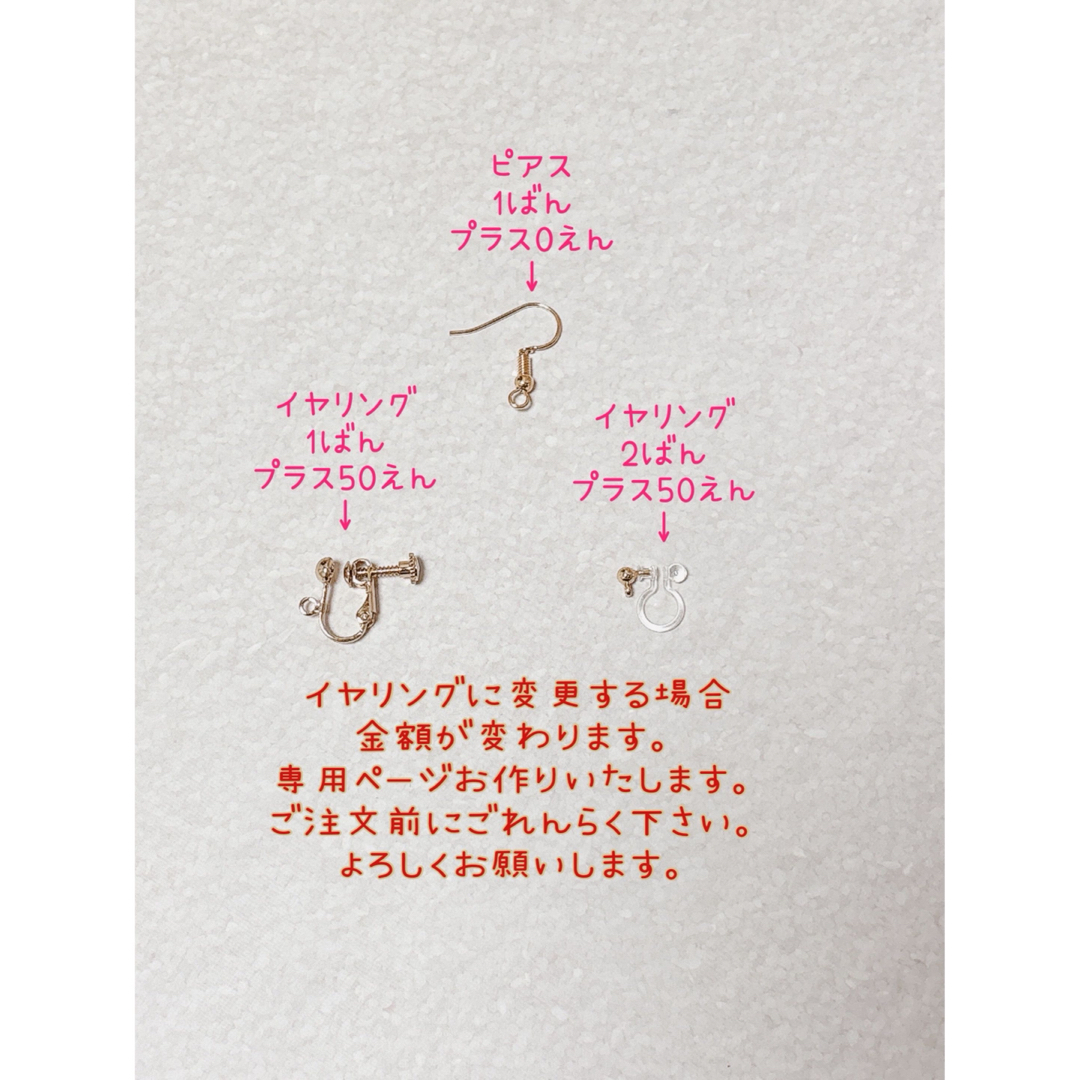 ピアス
1ばん
プラス0えん
↓
イヤリング
1ばん
プラス50えん
↓
イヤリング
2ばん
プラス50えん
↓
イヤリングに変更する場合
金額が変わります。
専用ページお作りいたします。
ご注文前にごれんらく下さい。
よろしくお願いします。